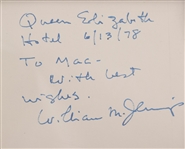 Queen Elizabeth
Hotel 6/13/78
To Mac-
With best
wishes.
William M. Jennings